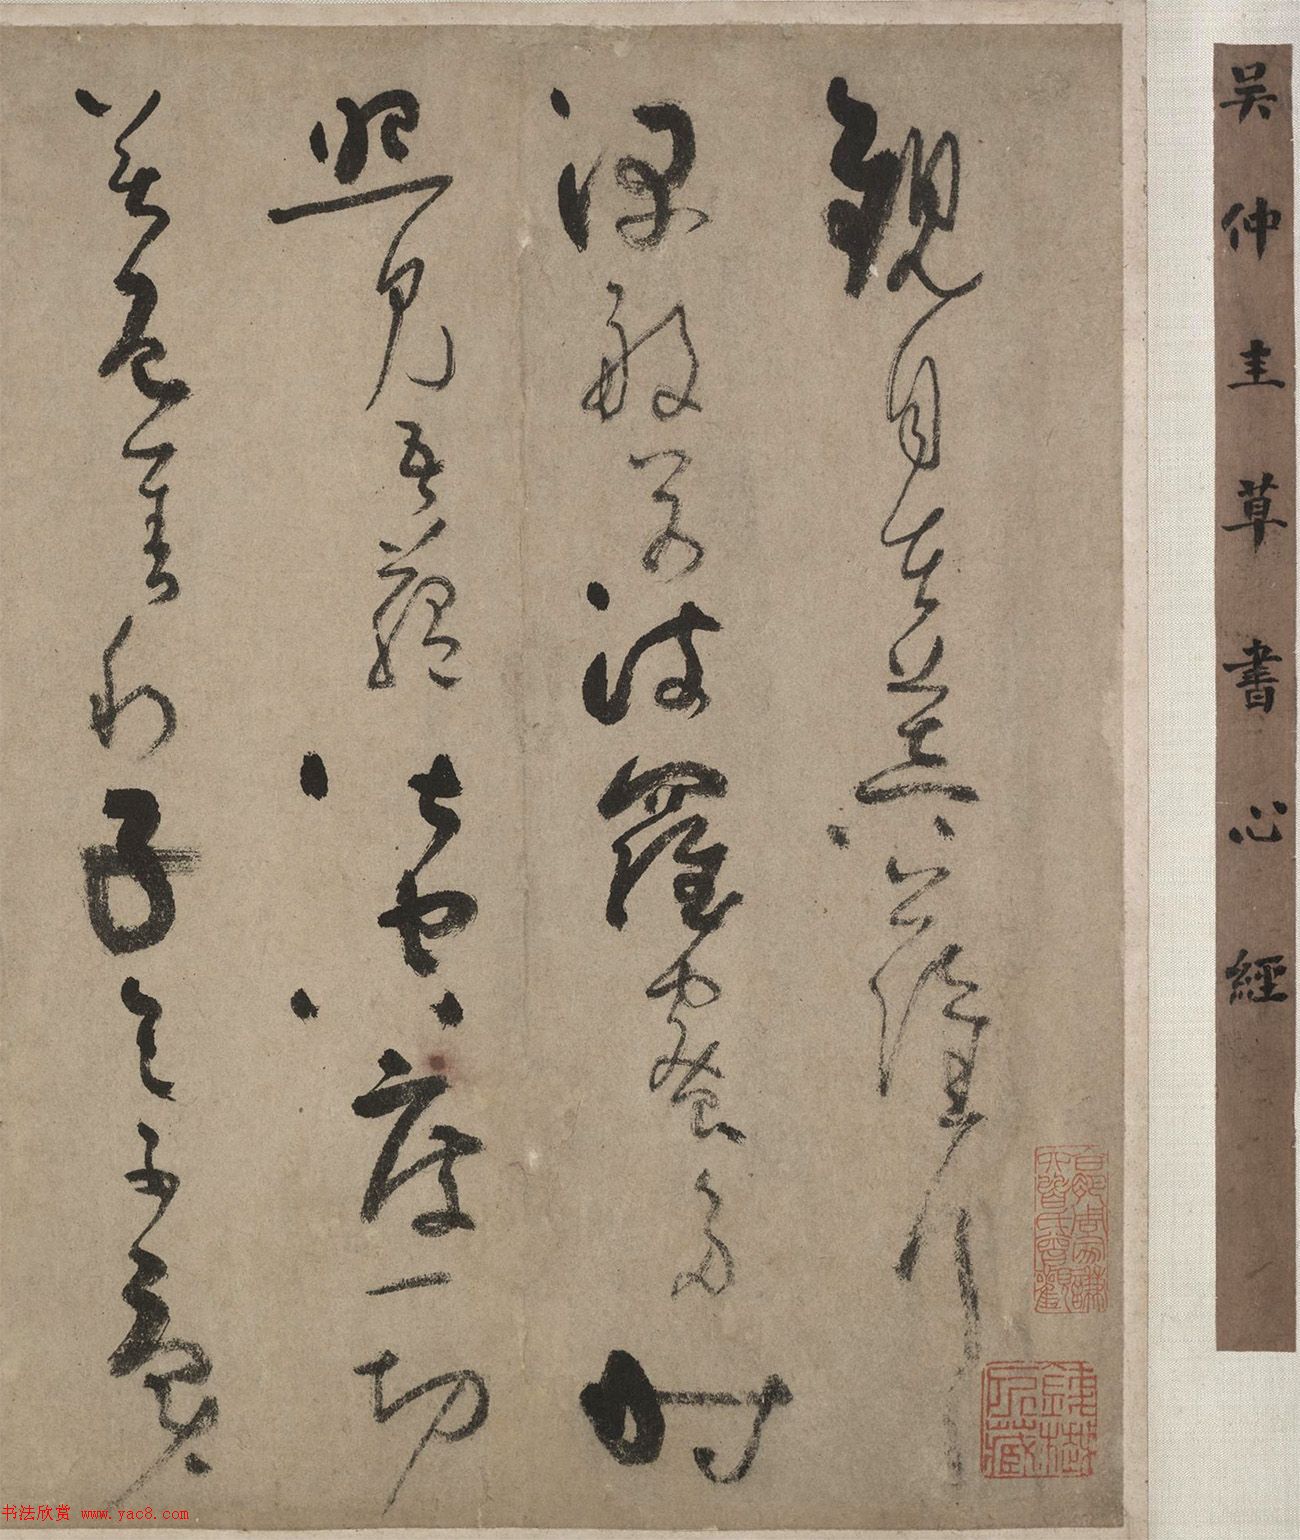 吴仲圭草書心經
觀自在菩薩行
深般若波羅蜜多時
照見五蘊皆空度一切
苦厄舍利子色不異
书法欣赏 www.yac8.com